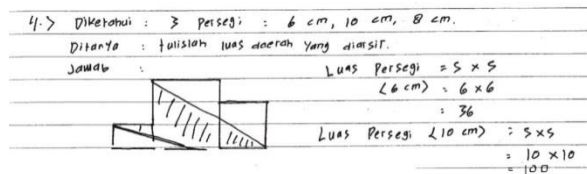 4.> Diketahui : 3 Persegi : 6 cm, 10 cm, 8 cm.
Ditanya : tulislah luas daerah yang diarsir.
Jawab :
Luas Persegi = s x s
(6 cm) : 6 x 6
: 36
Luas Persegi (10 cm) : s x s
= 10 x 10
= 100